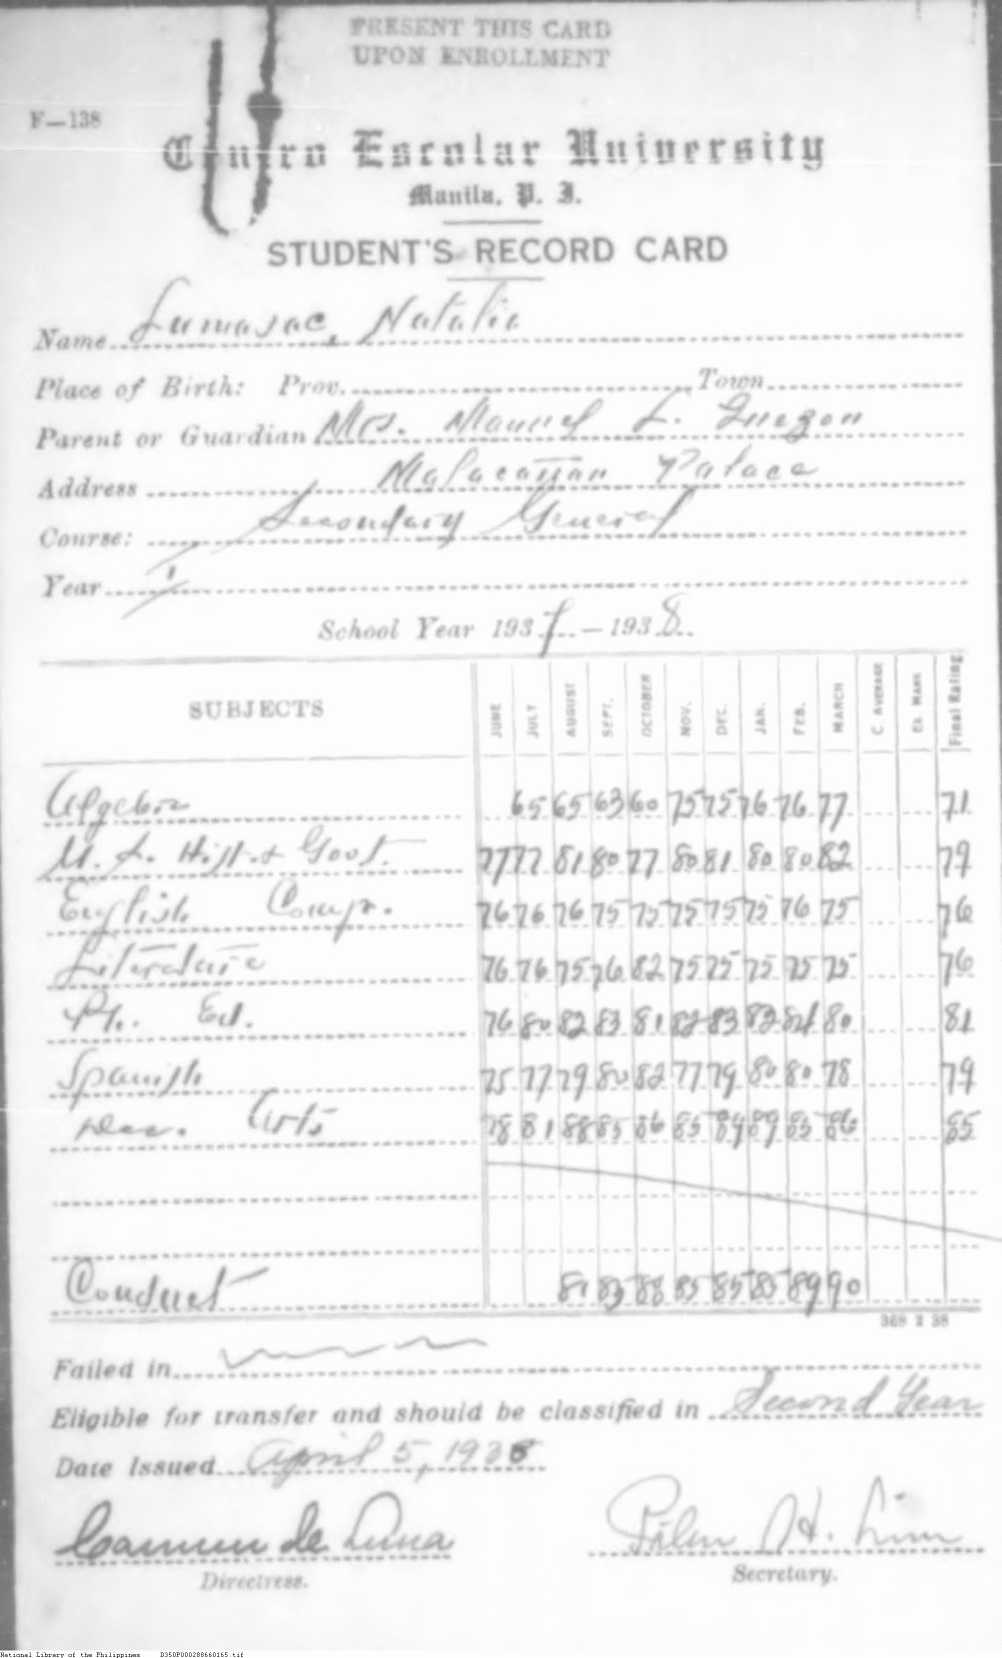 PRESENT THIS CARD
UPON ENROLLMENT
F—138
Centro Escolar University
Manila, P. I.
STUDENT'S RECORD CARD
Name Lumasac, Natalia
Place of Birth: Prov. Town
Parent or Guardian Mrs. Manuel L. Quezon
Address Malacañan Palace
Course: Secondary General
Year I
School Year 1937—1938
SUBJECTS JUNE JULY AUGUST SEPT. OCTOBER NOV. DEC. JAN. FEB. MARCH C. AVERAGE Ex. MARK Final Rating
Algebra 65 65 63 60 75 75 76 76 77 71
U. S. Hist. & Govt. 77 77 81 80 77 80 81 80 80 82 79
English Comp. 76 76 76 75 75 75 75 75 76 75 76
Literature 76 76 75 76 82 75 75 75 75 75 76
Ph. Ed. 76 80 82 83 81 82 83 82 84 80 81
Spanish 75 77 79 80 82 77 79 80 80 78 79
Dec. Arts 78 81 88 85 86 85 89 89 85 86 85
Conduct 81 83 88 85 85 85 89 90
368 2 38
Failed in
Eligible for transfer and should be classified in Second Year
Date Issued April 5, 1938
Carmen de Luna
Pilar H. Lim
Directress.
Secretary.
National Library of the Philippines D350P000288660165.tif